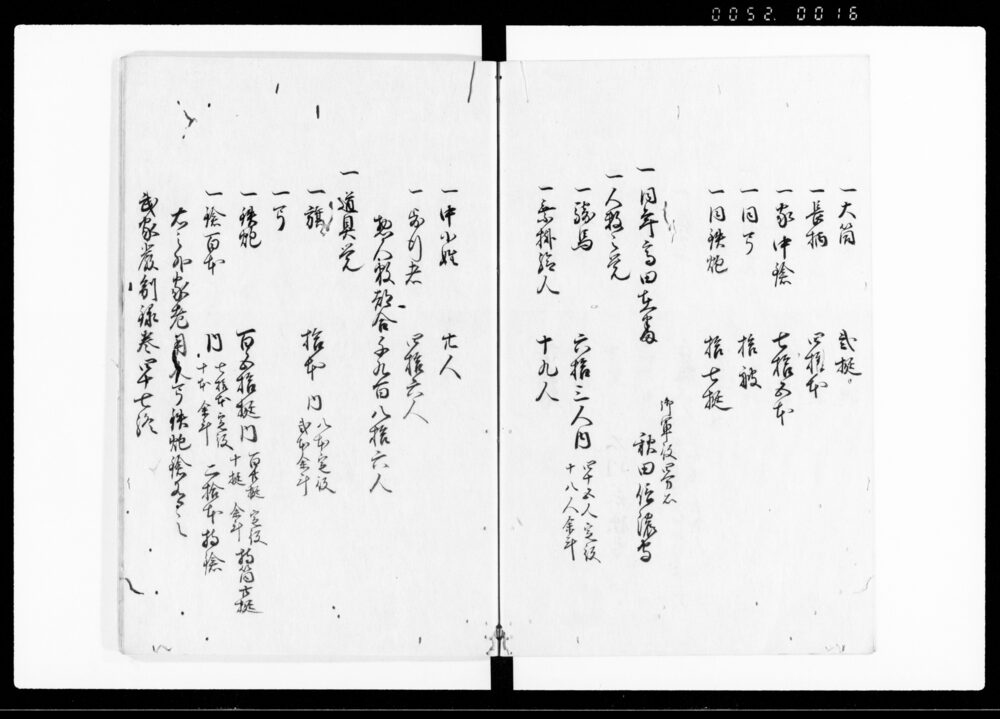 0052. 0016
一大筒 弐挺
一長柄 四拾本
一家中鑓 七拾五本
一同弓 拾
一同鉄炮 拾七挺
一同年高田在番
御軍役 秋田信濃守
一人数之覚
一騎馬 六拾三人内 四十五人定役 十八人余斗
一乗掛給人 十九人
一中小姓 廿人
一歩行者 四拾六人
惣人数都合千九百八拾六人
一道具覚
一旗 拾本 内 八本定役 弐本余斗
一弓
一鉄炮 百五拾挺内 定役 十挺 余斗 持筒
一鑓百本 内 七拾本定役 十本余斗 二拾本持鑓
右之外家老用人弓鉄炮鑓有之
武家厳制録巻四十七終